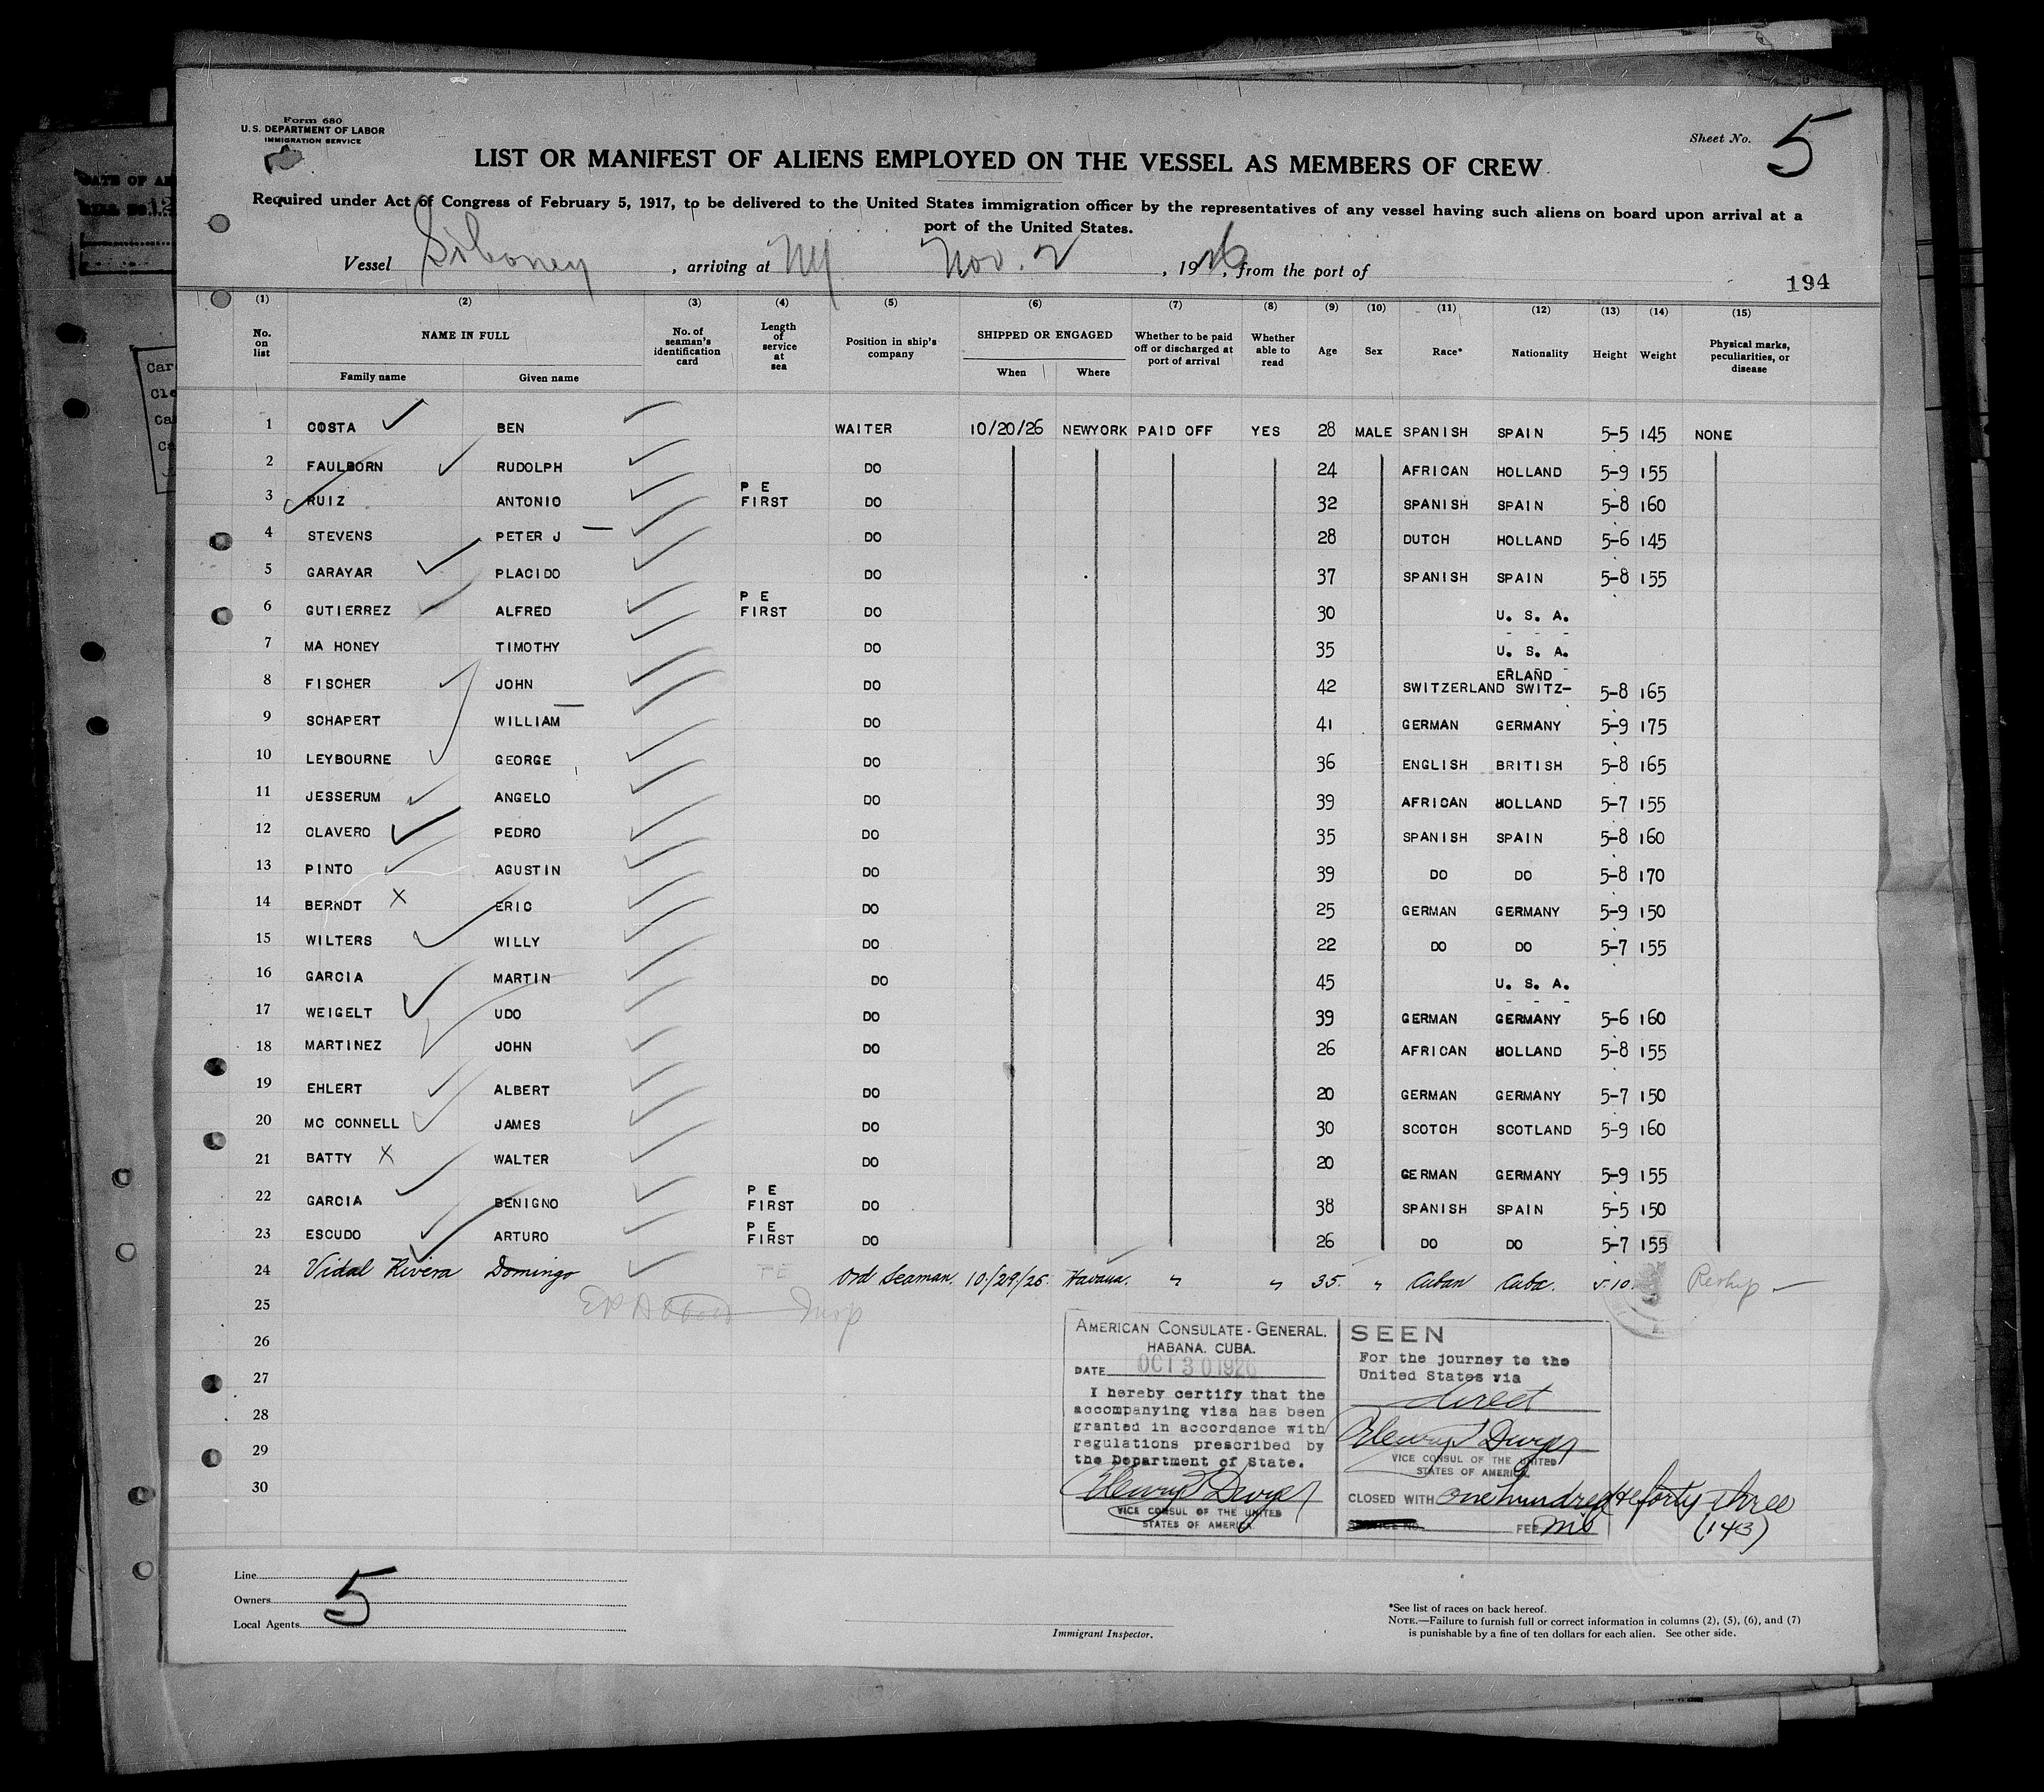 Form 680
U.S. DEPARTMENT OF LABOR
IMMIGRATION SERVICE
Sheet No. 5
LIST OR MANIFEST OF ALIENS EMPLOYED ON THE VESSEL AS MEMBERS OF CREW
Required under Act of Congress of February 5, 1917, to be delivered to the United States immigration officer by the representatives of any vessel having such aliens on board upon arrival at a
port of the United States.
Vessel Siboney, arriving at NY Nov. 2, 1926, from the port of
194
(1) (2) (3) (4) (5) (6) (7) (8) (9) (10) (11) (12) (13) (14) (15)
No. on list NAME IN FULL Family name Given name No. of seaman's identification card Length of service at sea Position in ship's company SHIPPED OR ENGAGED When Where Whether to be paid off or discharged at port of arrival Whether able to read Age Sex Race* Nationality Height Weight Physical marks, peculiarities, or disease
1 COSTA BEN WAITER 10/20/26 NEWYORK PAID OFF YES 28 MALE SPANISH SPAIN 5-5 145 NONE
2 FAULBORN RUDOLPH DO 24 AFRICAN HOLLAND 5-9 155
3 RUIZ ANTONIO P E FIRST DO 32 SPANISH SPAIN 5-8 160
4 STEVENS PETER J DO 28 DUTCH HOLLAND 5-6 145
5 GARAYAR PLACIDO DO 37 SPANISH SPAIN 5-8 155
6 GUTIERREZ ALFRED P E FIRST DO 30 U. S. A.
7 MA HONEY TIMOTHY DO 35 U. S. A.
8 FISCHER JOHN DO 42 SWITZERLAND SWITZ-ERLAND 5-8 165
9 SCHAPERT WILLIAM DO 41 GERMAN GERMANY 5-9 175
10 LEYBOURNE GEORGE DO 36 ENGLISH BRITISH 5-8 165
11 JESSERUM ANGELO DO 39 AFRICAN HOLLAND 5-7 155
12 CLAVERO PEDRO DO 35 SPANISH SPAIN 5-8 160
13 PINTO AGUSTIN DO 39 DO DO 5-8 170
14 BERNDT X ERIC DO 25 GERMAN GERMANY 5-9 150
15 WILTERS WILLY DO 22 DO DO 5-7 155
16 GARCIA MARTIN DO 45 U. S. A.
17 WEIGELT UDO DO 39 GERMAN GERMANY 5-6 160
18 MARTINEZ JOHN DO 26 AFRICAN HOLLAND 5-8 155
19 EHLERT ALBERT DO 20 GERMAN GERMANY 5-7 150
20 MC CONNELL JAMES DO 30 SCOTCH SCOTLAND 5-9 160
21 BATTY X WALTER DO 20 GERMAN GERMANY 5-9 155
22 GARCIA BENIGNO P E FIRST DO 38 SPANISH SPAIN 5-5 150
23 ESCUDO ARTURO P E FIRST DO 26 DO DO 5-7 155
24 Vidal Rivera Domingo Ord Seaman. 10/29/26. Havana. " " 35. " Cuban Cuba. 5.10. Reship
25 Insp
26
27
28
29
30
AMERICAN CONSULATE-GENERAL.
HABANA. CUBA.
DATE OCT 30 1926
I hereby certify that the
accompanying visa has been
granted in accordance with
regulations prescribed by
the Department of State.
VICE CONSUL OF THE UNITED
STATES OF AMERICA.
SEEN
For the journey to the
United States via
direct
VICE CONSUL OF THE UNITED
STATES OF AMERICA.
CLOSED WITH one hundred & forty three
FEE (143)
Line
Owners
Local Agents
5
Immigrant Inspector.
*See list of races on back hereof.
NOTE.—Failure to furnish full or correct information in columns (2), (5), (6), and (7)
is punishable by a fine of ten dollars for each alien. See other side.